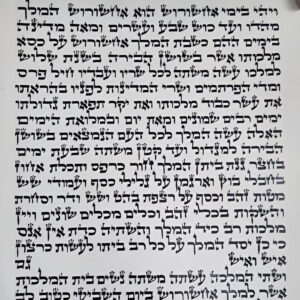 ויהי בימי אחשורוש הוא אחשורוש המלך
מהדו ועד כוש שבע ועשרים ומאה מדינה
בימים ההם כשבת המלך אחשורוש על כסא
מלכותו אשר בשושן הבירה בשנת שלוש
למלכו עשה משתה לכל שריו ועבדיו חיל פרס
ומדי הפרתמים ושרי המדינות לפניו בהראתו
את עשר כבוד מלכותו ואת יקר תפארת גדולתו
ימים רבים שמונים ומאת יום ובמלואת הימים
האלה עשה המלך לכל העם הנמצאים בשושן
הבירה למגדול ועד קטן משתה שבעת ימים
בחצר גנת ביתן המלך חור כרפס ותכלת אחוז
בחבלי בוץ וארגמן על גלילי כסף ועמודי שש
מטות זהב וכסף על רצפת בהט ושש ודר וסחרת
והשקות בכלי זהב וכלים מכלים שונים ויין
מלכות רב כיד המלך והשתיה כדת אין אנס
כי כן יסד המלך על כל רב ביתו לעשות כרצון
איש ואיש גם
ושתי המלכה עשתה משתה נשים בית המלכות
אשר למלך אחשורוש ביום השביעי כטוב לב